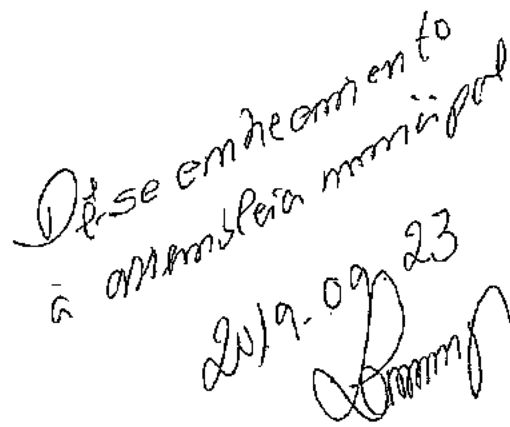 Dê-se conhecimento
à assembleia municipal
2019-09-23